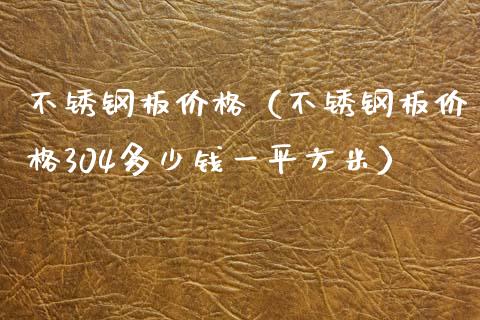 不锈钢板价格（不锈钢板价
格304多少钱一平方米）